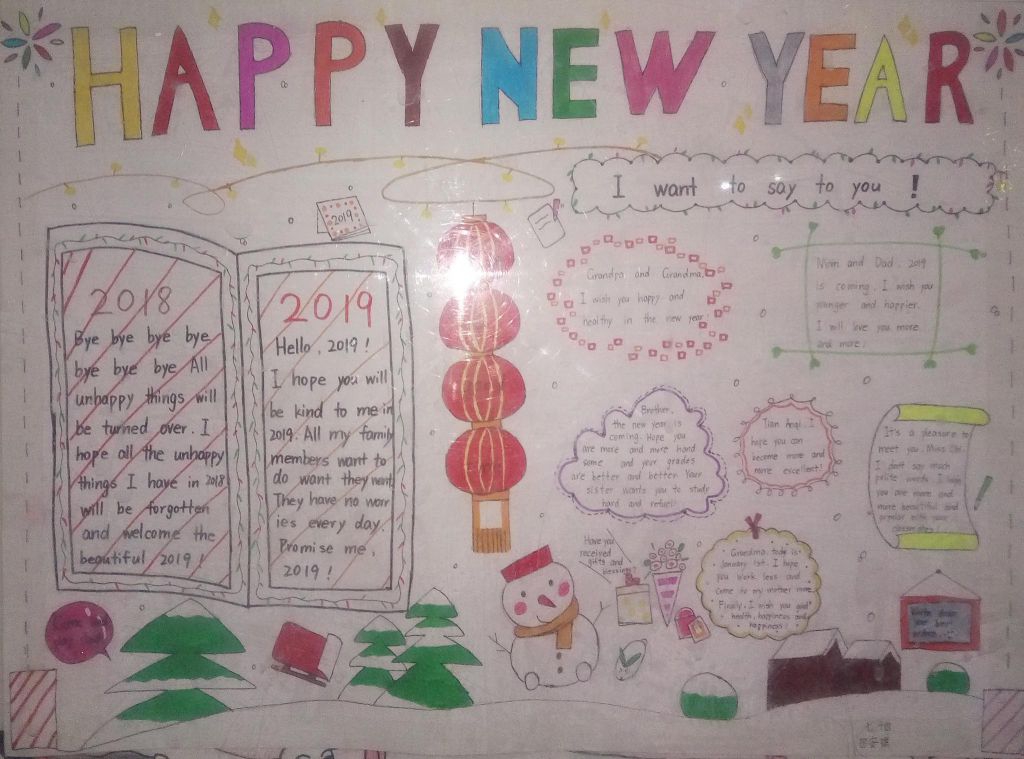 HAPPY NEW YEAR
I want to say to you !
2019
2018
Bye bye bye bye
bye bye bye All
unhappy things will
be turned over. I
hope all the unhappy
things I have in 2018
will be forgotten
and welcome the
beautiful 2019 !
2019
Hello, 2019 !
I hope you will
be kind to me in
2019. All my family
members want to
do want they want
They have no worr
ies every day.
Promise me,
2019 !
Grandpa and Grandma,
I wish you happy and
healthy in the new year.
Mom and Dad, 2019
is coming. I wish you
younger and happier.
I will love you more
and more.
Brother,
the new year is
coming. Hope you
are more and more hand
some and your grades
are better and better. Your
sister wants you to study
hard and refuel!
Tian Anqi, I
hope you can
become more and
more excellent!
It's a pleasure to
meet you, Miss
I don't say much
polite words. I hope
you are more and
more beautiful and
popular with your
Have you
received
gifts and
blessings?
Grandma, today is
January 1st. I hope
you work less and
come to my mother more.
Finally, I wish you good
health, happiness and
happiness!
Write down
your best
wishes